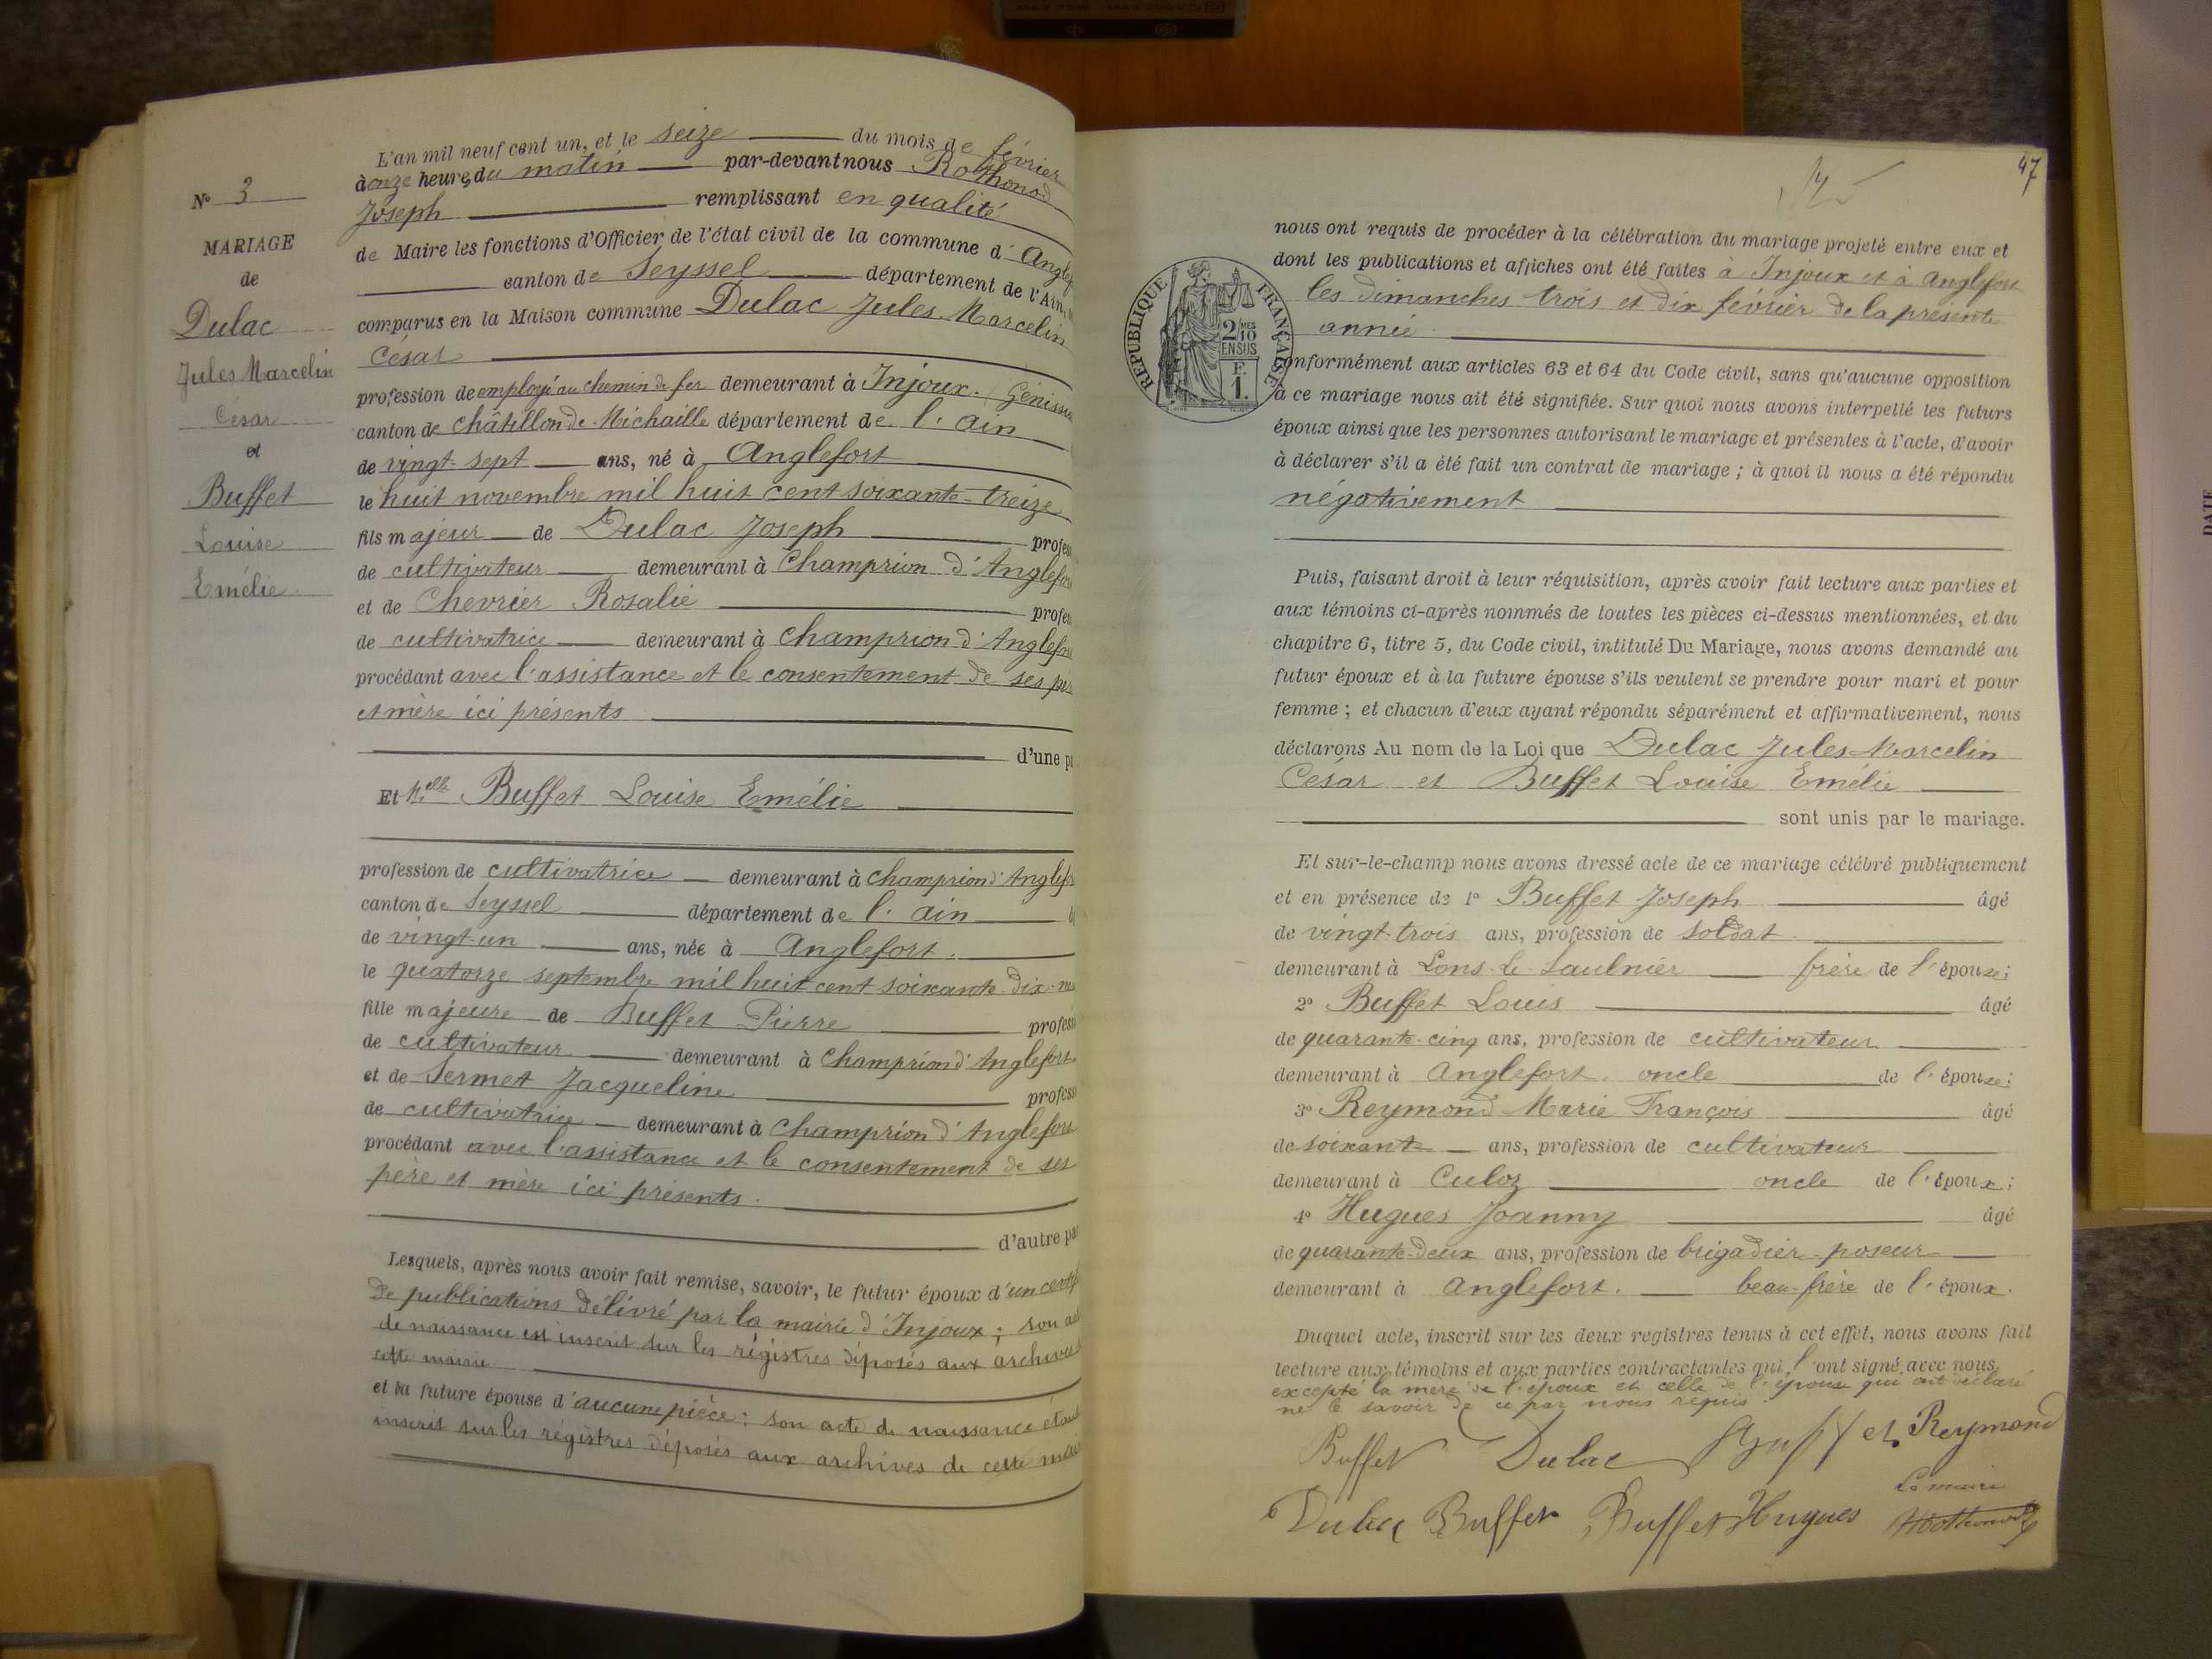 N° 3
MARIAGE
de
Dulac
Jules Marcelin
César
et
Buffet
Louise
Emélie.
L'an mil neuf cent un, et le seize du mois de février
à onze heures du matin par-devant nous Rothonod
Joseph remplissant en qualité
de Maire les fonctions d'Officier de l'état civil de la commune d'
canton de Seyssel département de l'Ain,
comparus en la Maison commune Dulac Jules Marcelin
César
profession de employé au chemin de fer demeurant à Injoux. (
canton de Châtillon de Michaille département de l'Ain
de vingt-sept ans, né à Anglefort
le huit novembre mil huit cent soixante-treize
fils majeur de Dulac Joseph
de cultivateur demeurant à Champrion d'
et de Chevrier Rosalie
de cultivatrice demeurant à Champrion d'
procédant avec l'assistance et le consentement de ses
et mère ici présents
d'une
Et Melle Buffet Louise Emélie
profession de cultivatrice demeurant à Champrion d'
canton de Seyssel département de l'Ain
de vingt-un ans, née à Anglefort.
le quatorze septembre mil huit cent soixante-dix-
fille majeure de Buffet Pierre
de cultivateur demeurant à Champrion d'Anglefort
et de Sermet Jacqueline
de cultivatrice demeurant à Champrion d'Anglefort
procédant avec l'assistance et le consentement de ses
père et mère ici présents.
d'autre
Lesquels, après nous avoir fait remise, savoir, le futur époux d'un
de publications délivré par la mairie d'Injoux; son
de naissance est inscrit sur les régistres déposés aux archives
cette mairie
et la future épouse d'aucune pièce: son acte de naissance étant
inscrit sur les régistres déposés aux archives de cette
47
nous ont requis de procéder à la célébration du mariage projeté entre eux et
dont les publications et affiches ont été faites à Injoux et à Anglefort
les dimanches trois et dix février de la présente
année
RÉPUBLIQUE FRANÇAISE
2 MES
10
EN SUS
F.
1.
conformément aux articles 63 et 64 du Code civil, sans qu'aucune opposition
à ce mariage nous ait été signifiée. Sur quoi nous avons interpellé les futurs
époux ainsi que les personnes autorisant le mariage et présentes à l'acte, d'avoir
à déclarer s'il a été fait un contrat de mariage; à quoi il nous a été répondu
négativement
Puis, faisant droit à leur réquisition, après avoir fait lecture aux parties et
aux témoins ci-après nommés de toutes les pièces ci-dessus mentionnées, et du
chapitre 6, titre 5, du Code civil, intitulé Du Mariage, nous avons demandé au
futur époux et à la future épouse s'ils veulent se prendre pour mari et pour
femme; et chacun d'eux ayant répondu séparément et affirmativement, nous
déclarons Au nom de la Loi que Dulac Jules Marcelin
César et Buffet Louise Emélie
sont unis par le mariage.
Et sur-le-champ nous avons dressé acte de ce mariage célébré publiquement
et en présence de 1° Buffet Joseph âgé
de vingt-trois ans, profession de soldat
demeurant à Lons-le-Saulnier frère de l'épouse;
2° Buffet Louis âgé
de quarante-cinq ans, profession de cultivateur
demeurant à Anglefort. oncle de l'épouse;
3° Reymond Marie François âgé
de soixante ans, profession de cultivateur
demeurant à Culoz oncle de l'époux;
4° Hugues Joanny âgé
de quarante-deux ans, profession de brigadier-poseur
demeurant à Anglefort. beau-frère de l'époux.
Duquel acte, inscrit sur les deux registres tenus à cet effet, nous avons fait
lecture aux témoins et aux parties contractantes qui l'ont signé avec nous.
excepté la mère de l'époux et celle de l'épouse qui ont déclaré
ne le savoir de ce par nous requis
Buffet Dulac Reymond
Le maire
Dulac Buffet Buffet Hugues Rothonod
DATE